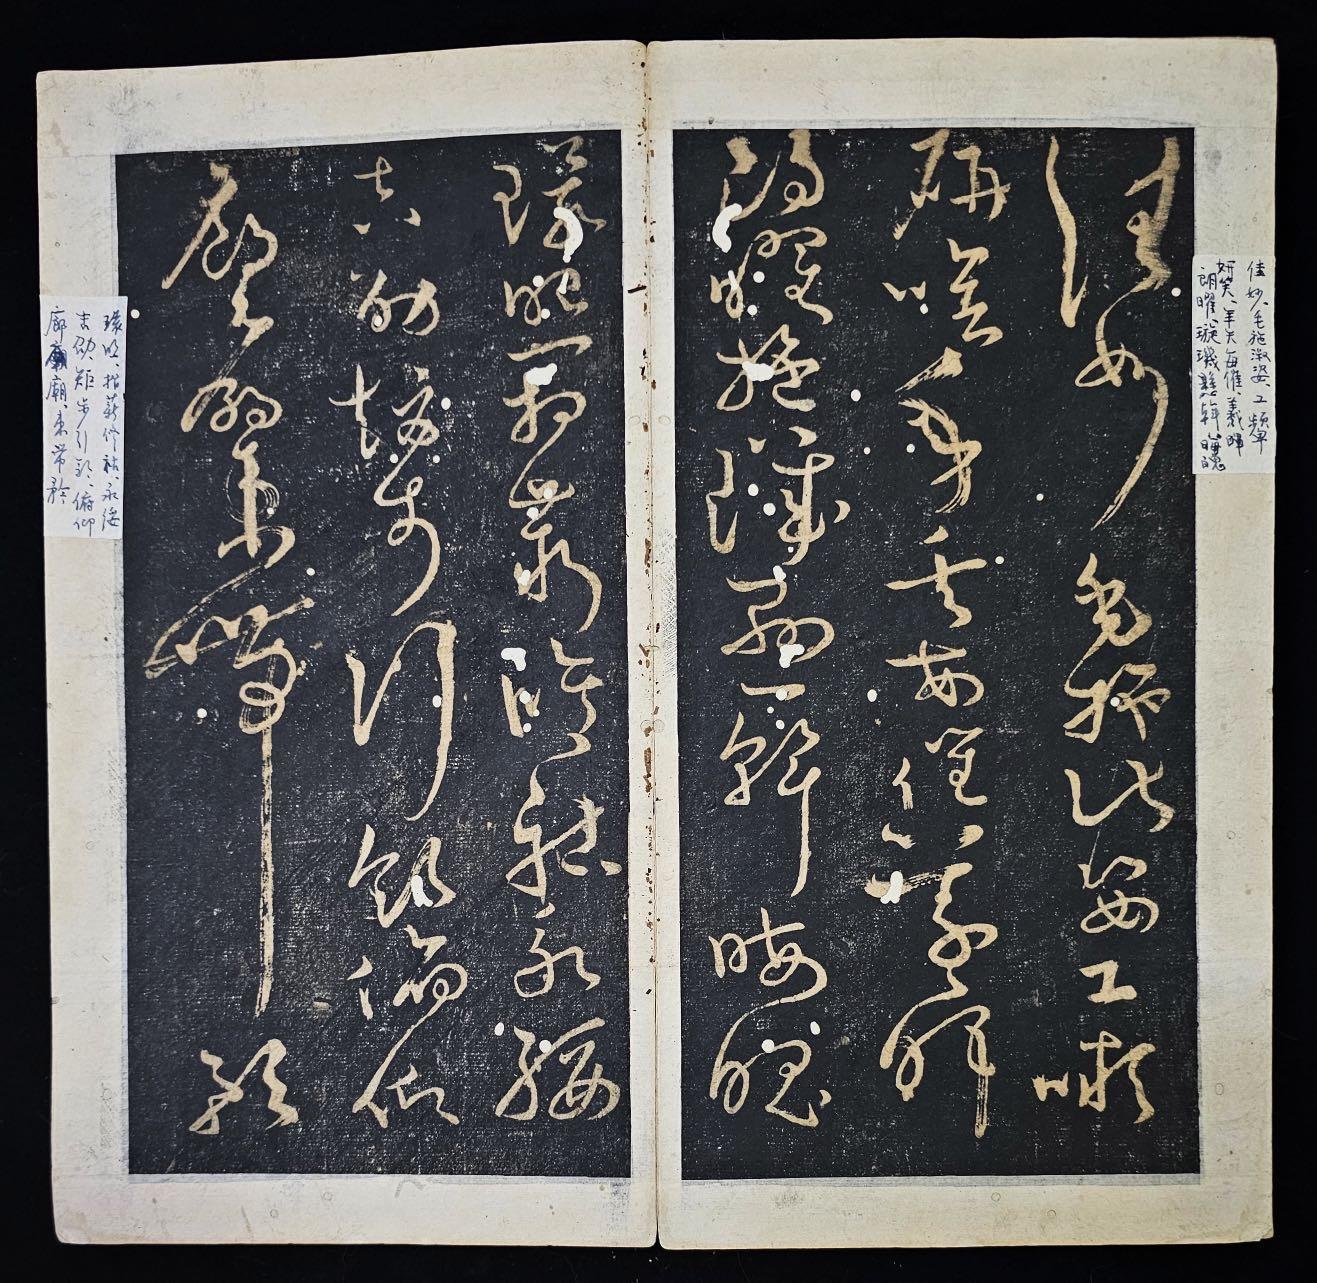 佳妙、毛施淑姿、工顰
妍笑、年矢每催、義暉
朗曜、璇璣懸斡 晦魄
佳妙毛施淑姿工顰
妍笑年矢每催羲暉
朗曜璇璣懸斡晦魄
環照指薪修祜永綏
吉劭矩步引領俯仰
廊廟束帶矜
環照、指薪修祜、永綏
吉劭、矩步引領、俯仰
廊廟、束帶矜